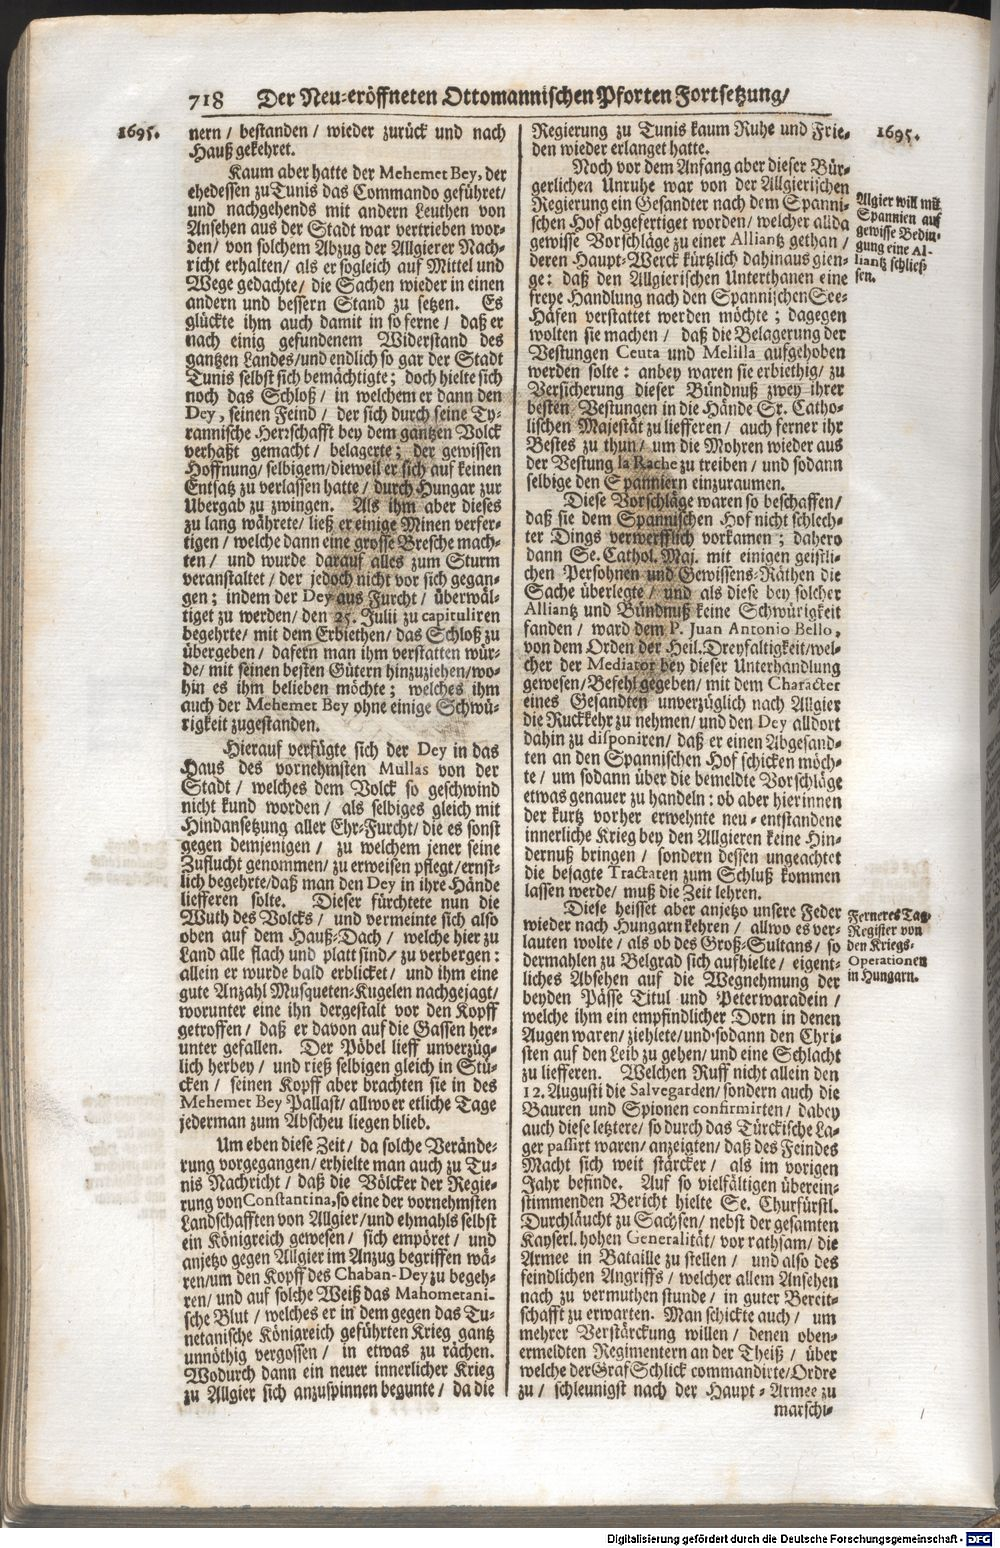 718 Der Neu-eröffneten Ottomannischen Pforten Fortsetzung/
1695.
nern / bestanden / wieder zurück und nach
Hauß gekehret.
Kaum aber hatte der Mehemet Bey, der
ehedessen zu Tunis das Commando geführet/
und nachgehends mit andern Leuthen von
Ansehen aus der Stadt war vertrieben wor-
den/ von solchem Abzug der Allgierer Nach-
richt erhalten/ als er sogleich auf Mittel und
Wege gedachte/ die Sachen wieder in einen
andern und bessern Stand zu setzen. Es
glückte ihm auch damit in so ferne/ daß er
nach einig gefundenem Widerstand des
gantzen Landes/und endlich so gar der Stadt
Tunis selbst sich bemächtigte; doch hielte sich
noch das Schloß/ in welchem er dann den
Dey, seinen Feind/ der sich durch seine Ty-
rannische Herrschafft bey dem gantzen Volck
verhaßt gemacht/ belagerte; der gewissen
Hoffnung/ selbigem/dieweil er sich auf keinen
Entsatz zu verlassen hatte/ durch Hungar zur
Ubergab zu zwingen. Als ihm aber dieses
zu lang währete/ ließ er einige Minen verfer-
tigen/ welche dann eine grosse Bresche mach-
ten/ und wurde darauf alles zum Sturm
veranstaltet/ der jedoch nicht vor sich gegan-
gen; indem der Dey aus Furcht/ überwäl-
tiget zu werden/ den 25. Julii zu capituliren
begehrte/ mit dem Erbiethen/ das Schloß zu
übergeben/ dafern man ihm verstatten wür-
de/ mit seinen besten Gütern hinzuziehen/wo-
hin es ihm belieben möchte; welches ihm
auch der Mehemet Bey ohne einige Schwü-
rigkeit zugestanden.
Hierauf verfügte sich der Dey in das
Haus des vornehmsten Mullas von der
Stadt/ welches dem Volck so geschwind
nicht kund worden/ als selbiges gleich mit
Hindansetzung aller Ehr-Furcht/ die es sonst
gegen demjenigen/ zu welchem jener seine
Zuflucht genommen/ zu erweisen pflegt/ernst-
lich begehrte/daß man den Dey in ihre Hände
liefferen solte. Dieser fürchtete nun die
Wuth des Volcks/ und vermeinte sich also
oben auf dem Hauß-Dach/ welche hier zu
Land alle flach und platt sind/ zu verbergen:
allein er wurde bald erblicket/ und ihm eine
gute Anzahl Musqueten-Kugelen nachgejagt/
worunter eine ihn dergestalt vor den Kopff
getroffen/ daß er davon auf die Gassen her-
unter gefallen. Der Pöbel lieff unverzüg-
lich herbey/ und rieß selbigen gleich in Stü-
cken/ seinen Kopff aber brachten sie in des
Mehemet Bey Pallast/ allwo er etliche Tage
jederman zum Abscheu liegen blieb.
Um eben diese Zeit/ da solche Verände-
rung vorgegangen/ erhielte man auch zu Tu-
nis Nachricht/ daß die Völcker der Regie-
rung von Constantina, so eine der vornehmsten
Landschafften von Allgier/und ehmahls selbst
ein Königreich gewesen/ sich empöret/ und
anjetzo gegen Allgier im Anzug begriffen wä-
ren/um den Kopff des Chaban-Dey zu begeh-
ren/ und auf solche Weiß das Mahometani-
sche Blut/ welches er in dem gegen das Tu-
netanische Königreich geführten Krieg gantz
unnöthig vergossen/ in etwas zu rächen.
Wodurch dann ein neuer innerlicher Krieg
zu Allgier sich anzuspinnen begunte/ da die
Regierung zu Tunis kaum Ruhe und Frie-
den wieder erlanget hatte.
1695.
Noch vor dem Anfang aber dieser Bür-
gerlichen Unruhe war von der Allgierischen
Regierung ein Gesandter nach dem Spanni-
schen Hof abgefertiget worden/ welcher allda
gewisse Vorschläge zu einer Alliantz gethan/
deren Haupt-Werck kürtzlich dahinaus gien-
ge: daß den Allgierischen Unterthanen eine
freye Handlung nach den Spannischen See-
Häfen verstattet werden möchte; dagegen
wolten sie machen/ daß die Belagerung der
Vestungen Ceuta und Melilla aufgehoben
werden solte: anbey waren sie erbiethig/ zu
Versicherung dieser Bündnuß zwey ihrer
besten Vestungen in die Hände Sr. Catho-
lischen Majestät zu liefferen/ auch ferner ihr
Bestes zu thun/ um die Mohren wieder aus
der Vestung la Rache zu treiben/ und sodann
selbige den Spanniern einzuraumen.
Allgier will mit
Spannien auf
gewisse Bedin-
gung eine Al-
liantz schließ
sen.
Diese Vorschläge waren so beschaffen/
daß sie dem Spannischen Hof nicht schlech-
ter Dings verwerfflich vorkamen; dahero
dann Se. Cathol. Maj. mit einigen geistli-
chen Persohnen und Gewissens-Räthen die
Sache überlegte/ und als diese bey solcher
Alliantz und Bündnuß keine Schwürigkeit
fanden/ ward dem P. Juan Antonio Bello,
von dem Orden der Heil. Dreyfaltigkeit/wel-
cher der Mediator bey dieser Unterhandlung
gewesen/Befehl gegeben/ mit dem Character
eines Gesandten unverzüglich nach Allgier
die Ruckkehr zu nehmen/ und den Dey alldort
dahin zu disponiren/ daß er einen Abgesand-
ten an den Spannischen Hof schicken möch-
te/ um sodann über die bemeldte Vorschläge
etwas genauer zu handeln: ob aber hierinnen
der kurtz vorher erwehnte neu-entstandene
innerliche Krieg bey den Allgieren keine Hin-
dernuß bringen/ sondern dessen ungeachtet
die besagte Tractaten zum Schluß kommen
lassen werde/ muß die Zeit lehren.
Diese heisset aber anjetzo unsere Feder
wieder nach Hungarn kehren/ allwo es ver-
lauten wolte/ als ob des Groß-Sultans/ so
dermahlen zu Belgrad sich aufhielte/ eigent-
liches Absehen auf die Wegnehmung der
beyden Pässe Titul und Peterwaradein/
welche ihm ein empfindlicher Dorn in denen
Augen waren/ ziehlete/und sodann den Chri-
sten auf den Leib zu gehen/ und eine Schlacht
zu liefferen. Welchen Ruff nicht allein den
12. Augusti die Salvegarden/ sondern auch die
Bauren und Spionen confirmirten/ dabey
auch diese letztere/ so durch das Türckische La-
ger passirt waren/ anzeigten/ daß des Feindes
Macht sich weit stärcker/ als im vorigen
Jahr befinde. Auf so vielfältigen überein-
stimmenden Bericht hielte Se. Churfürstl.
Durchläucht zu Sachsen/ nebst der gesamten
Kayserl. hohen Generalität/ vor rathsam/ die
Armee in Bataille zu stellen/ und also des
feindlichen Angriffs/ welcher allem Ansehen
nach zu vermuthen stunde/ in guter Bereit-
schafft zu erwarten. Man schickte auch/ um
mehrer Verstärckung willen/ denen oben-
ermeldten Regimentern an der Theiß/ über
welche der Graf Schlick commandirte/Ordre
zu/ schleunigst nach der Haupt-Armee zu
marschi-
Ferneres Tag-
Register von
den Kriegs-
Operationen
in Hungarn.
Digitalisierung gefördert durch die Deutsche Forschungsgemeinschaft - DFG